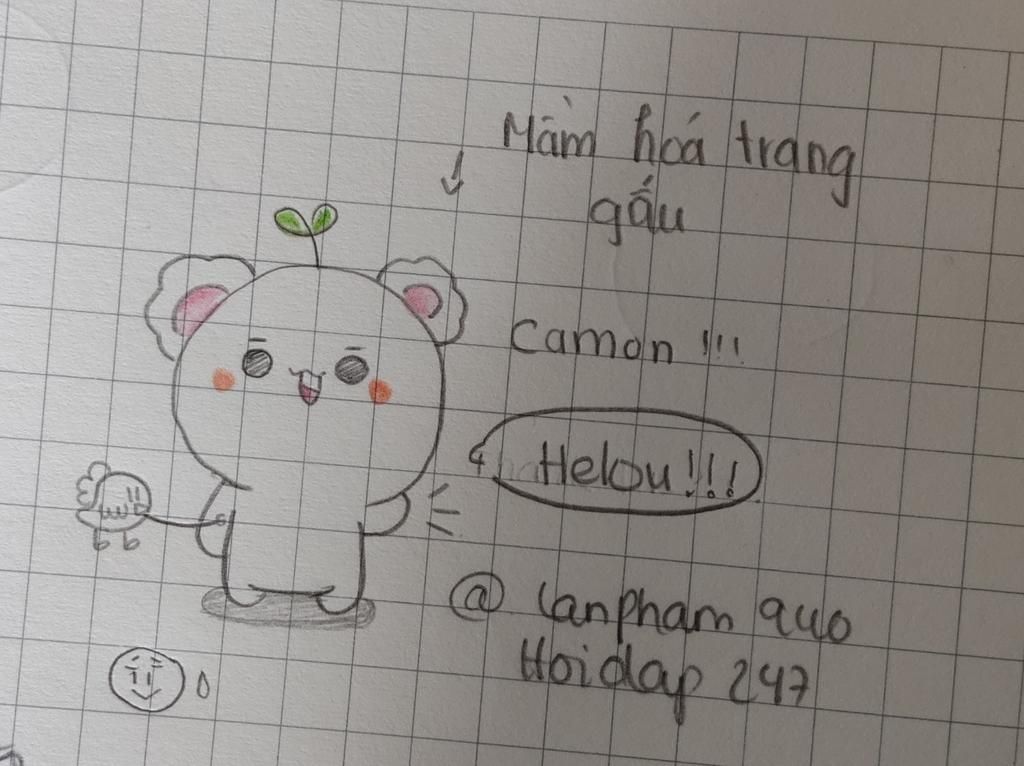 Mầm hoá trang
gấu
Camon !!!
Helou !!!
@ lanpham 940
Hoidap 247